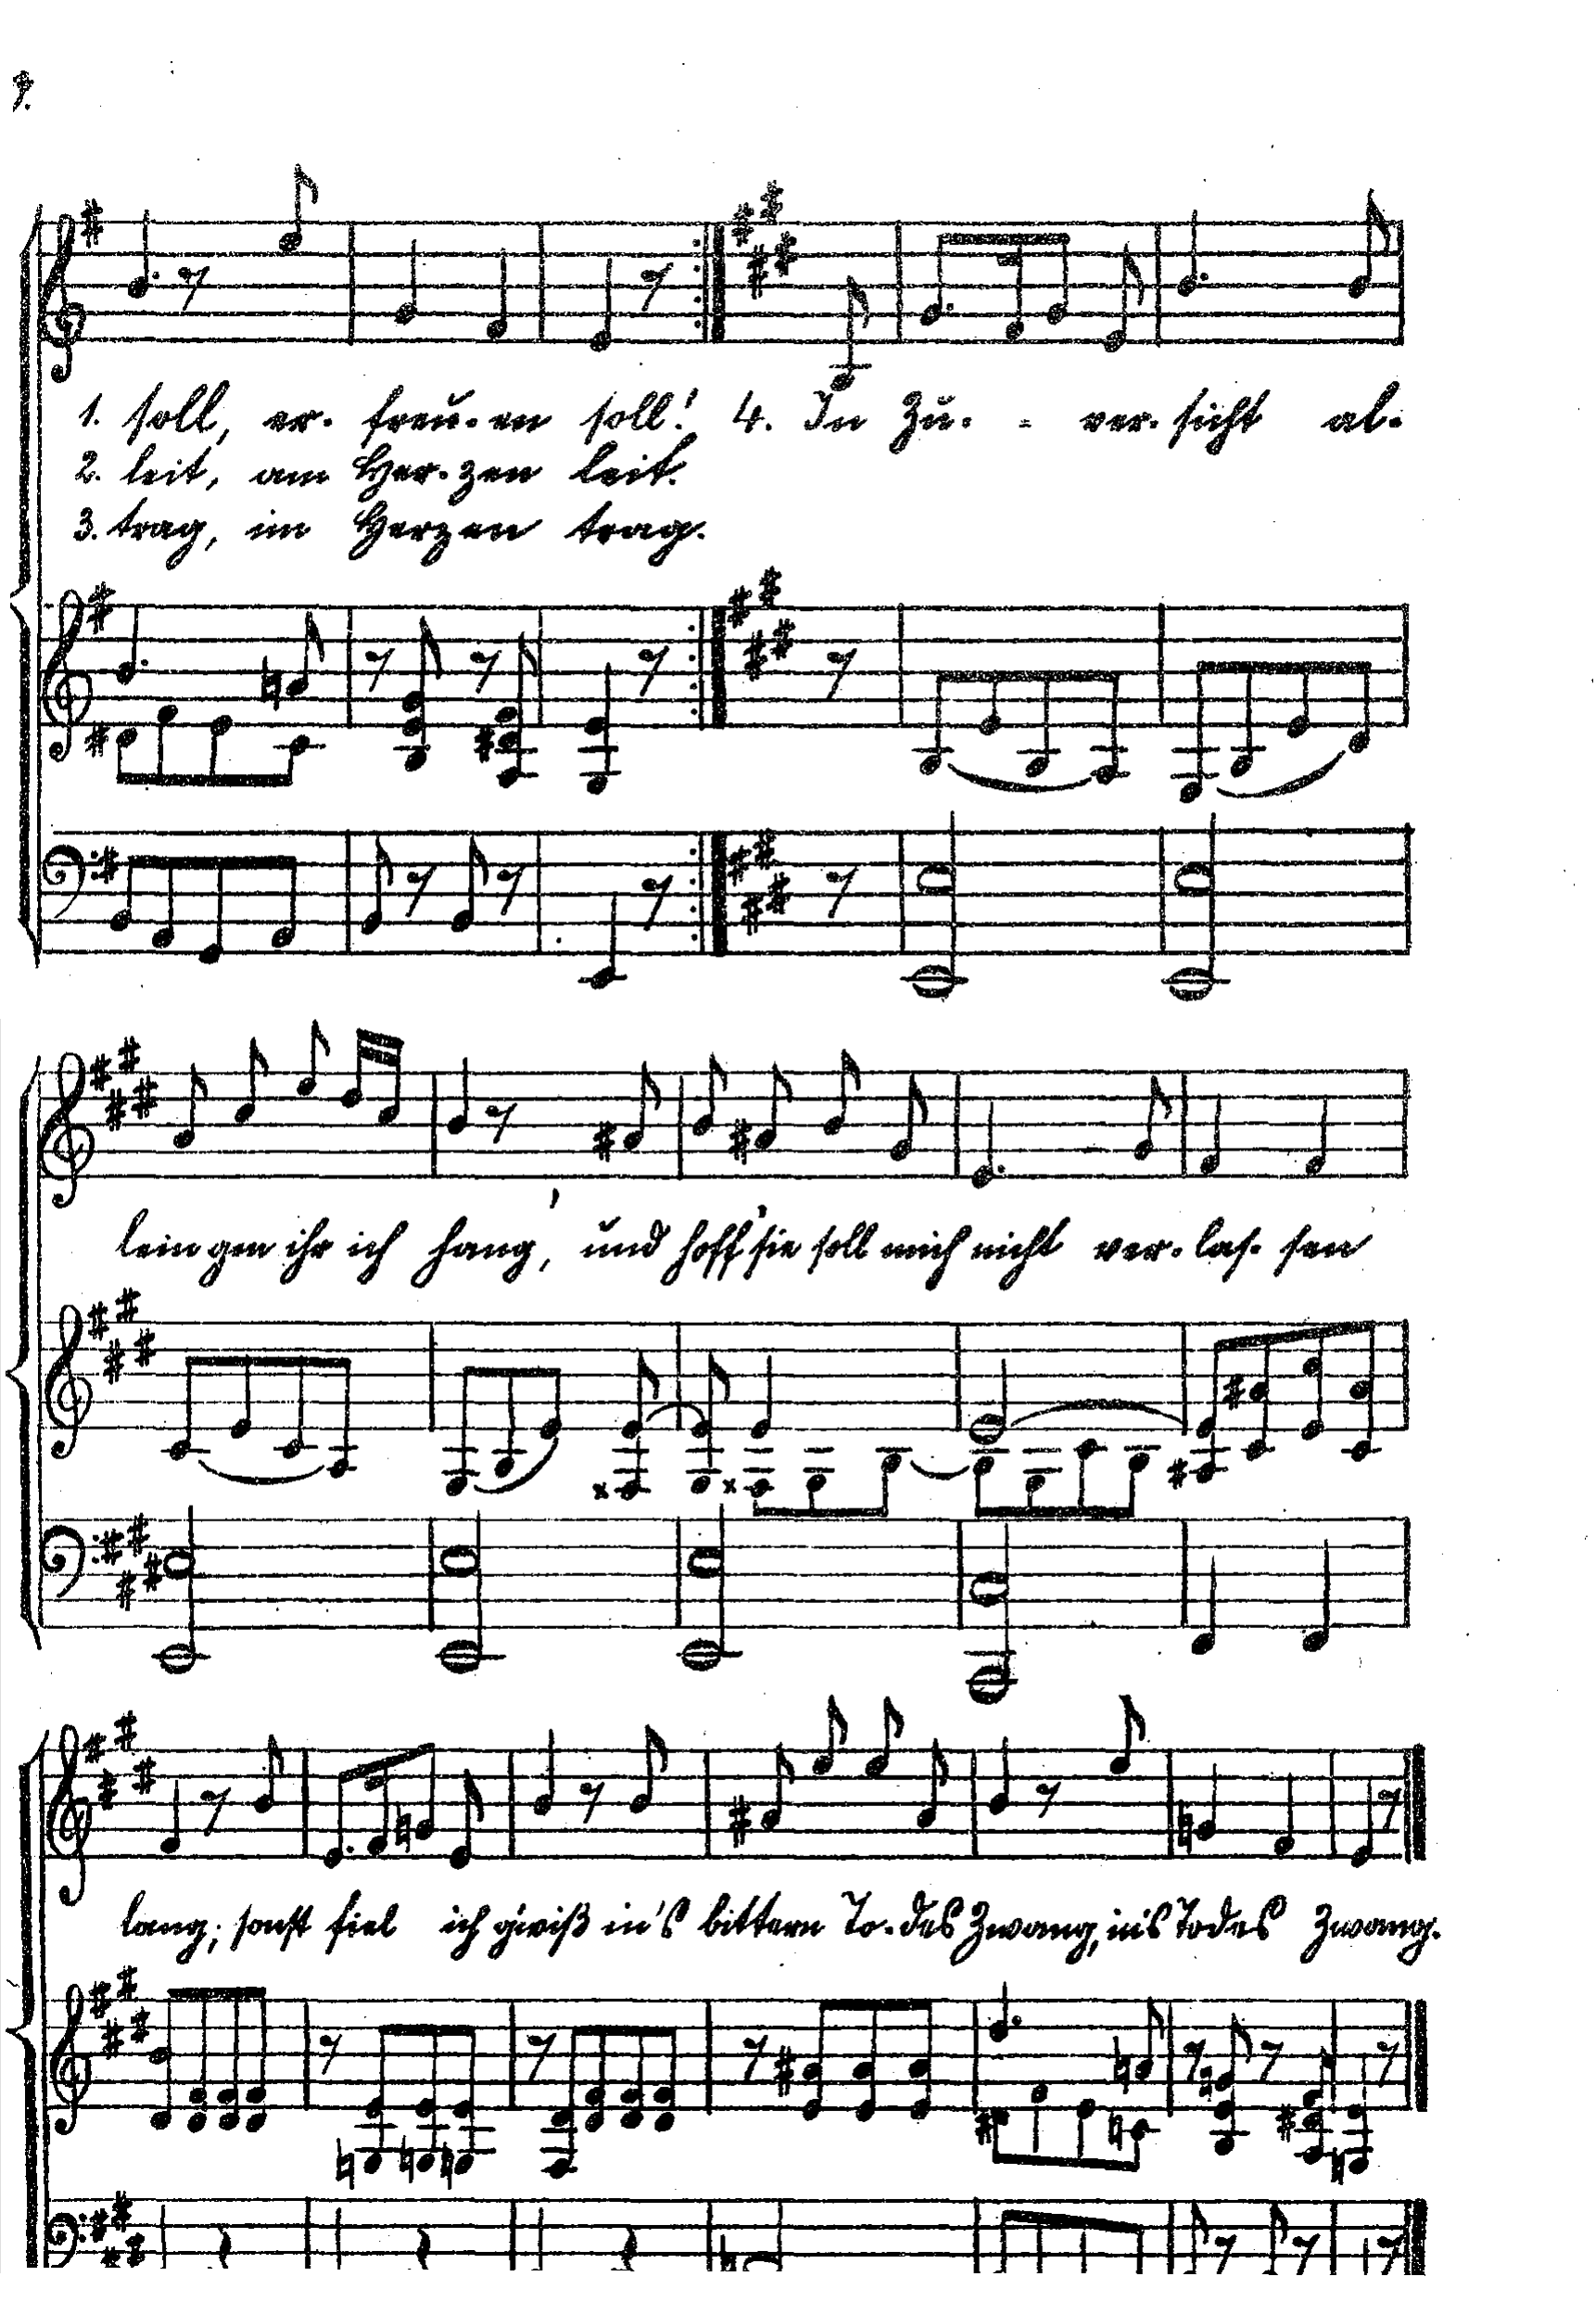 1. soll, er- freu-en soll! 4. In Zu- - ver-sicht al-
2. leit, am Her-zen leit.
3. trag, im Herzen trag.
lein gen ihr ich hang', und hoff' sie soll mich nicht ver-las-sen
lang; sonst fiel ich g'wiß in's bittern To-des Zwang, in's Todes Zwang.